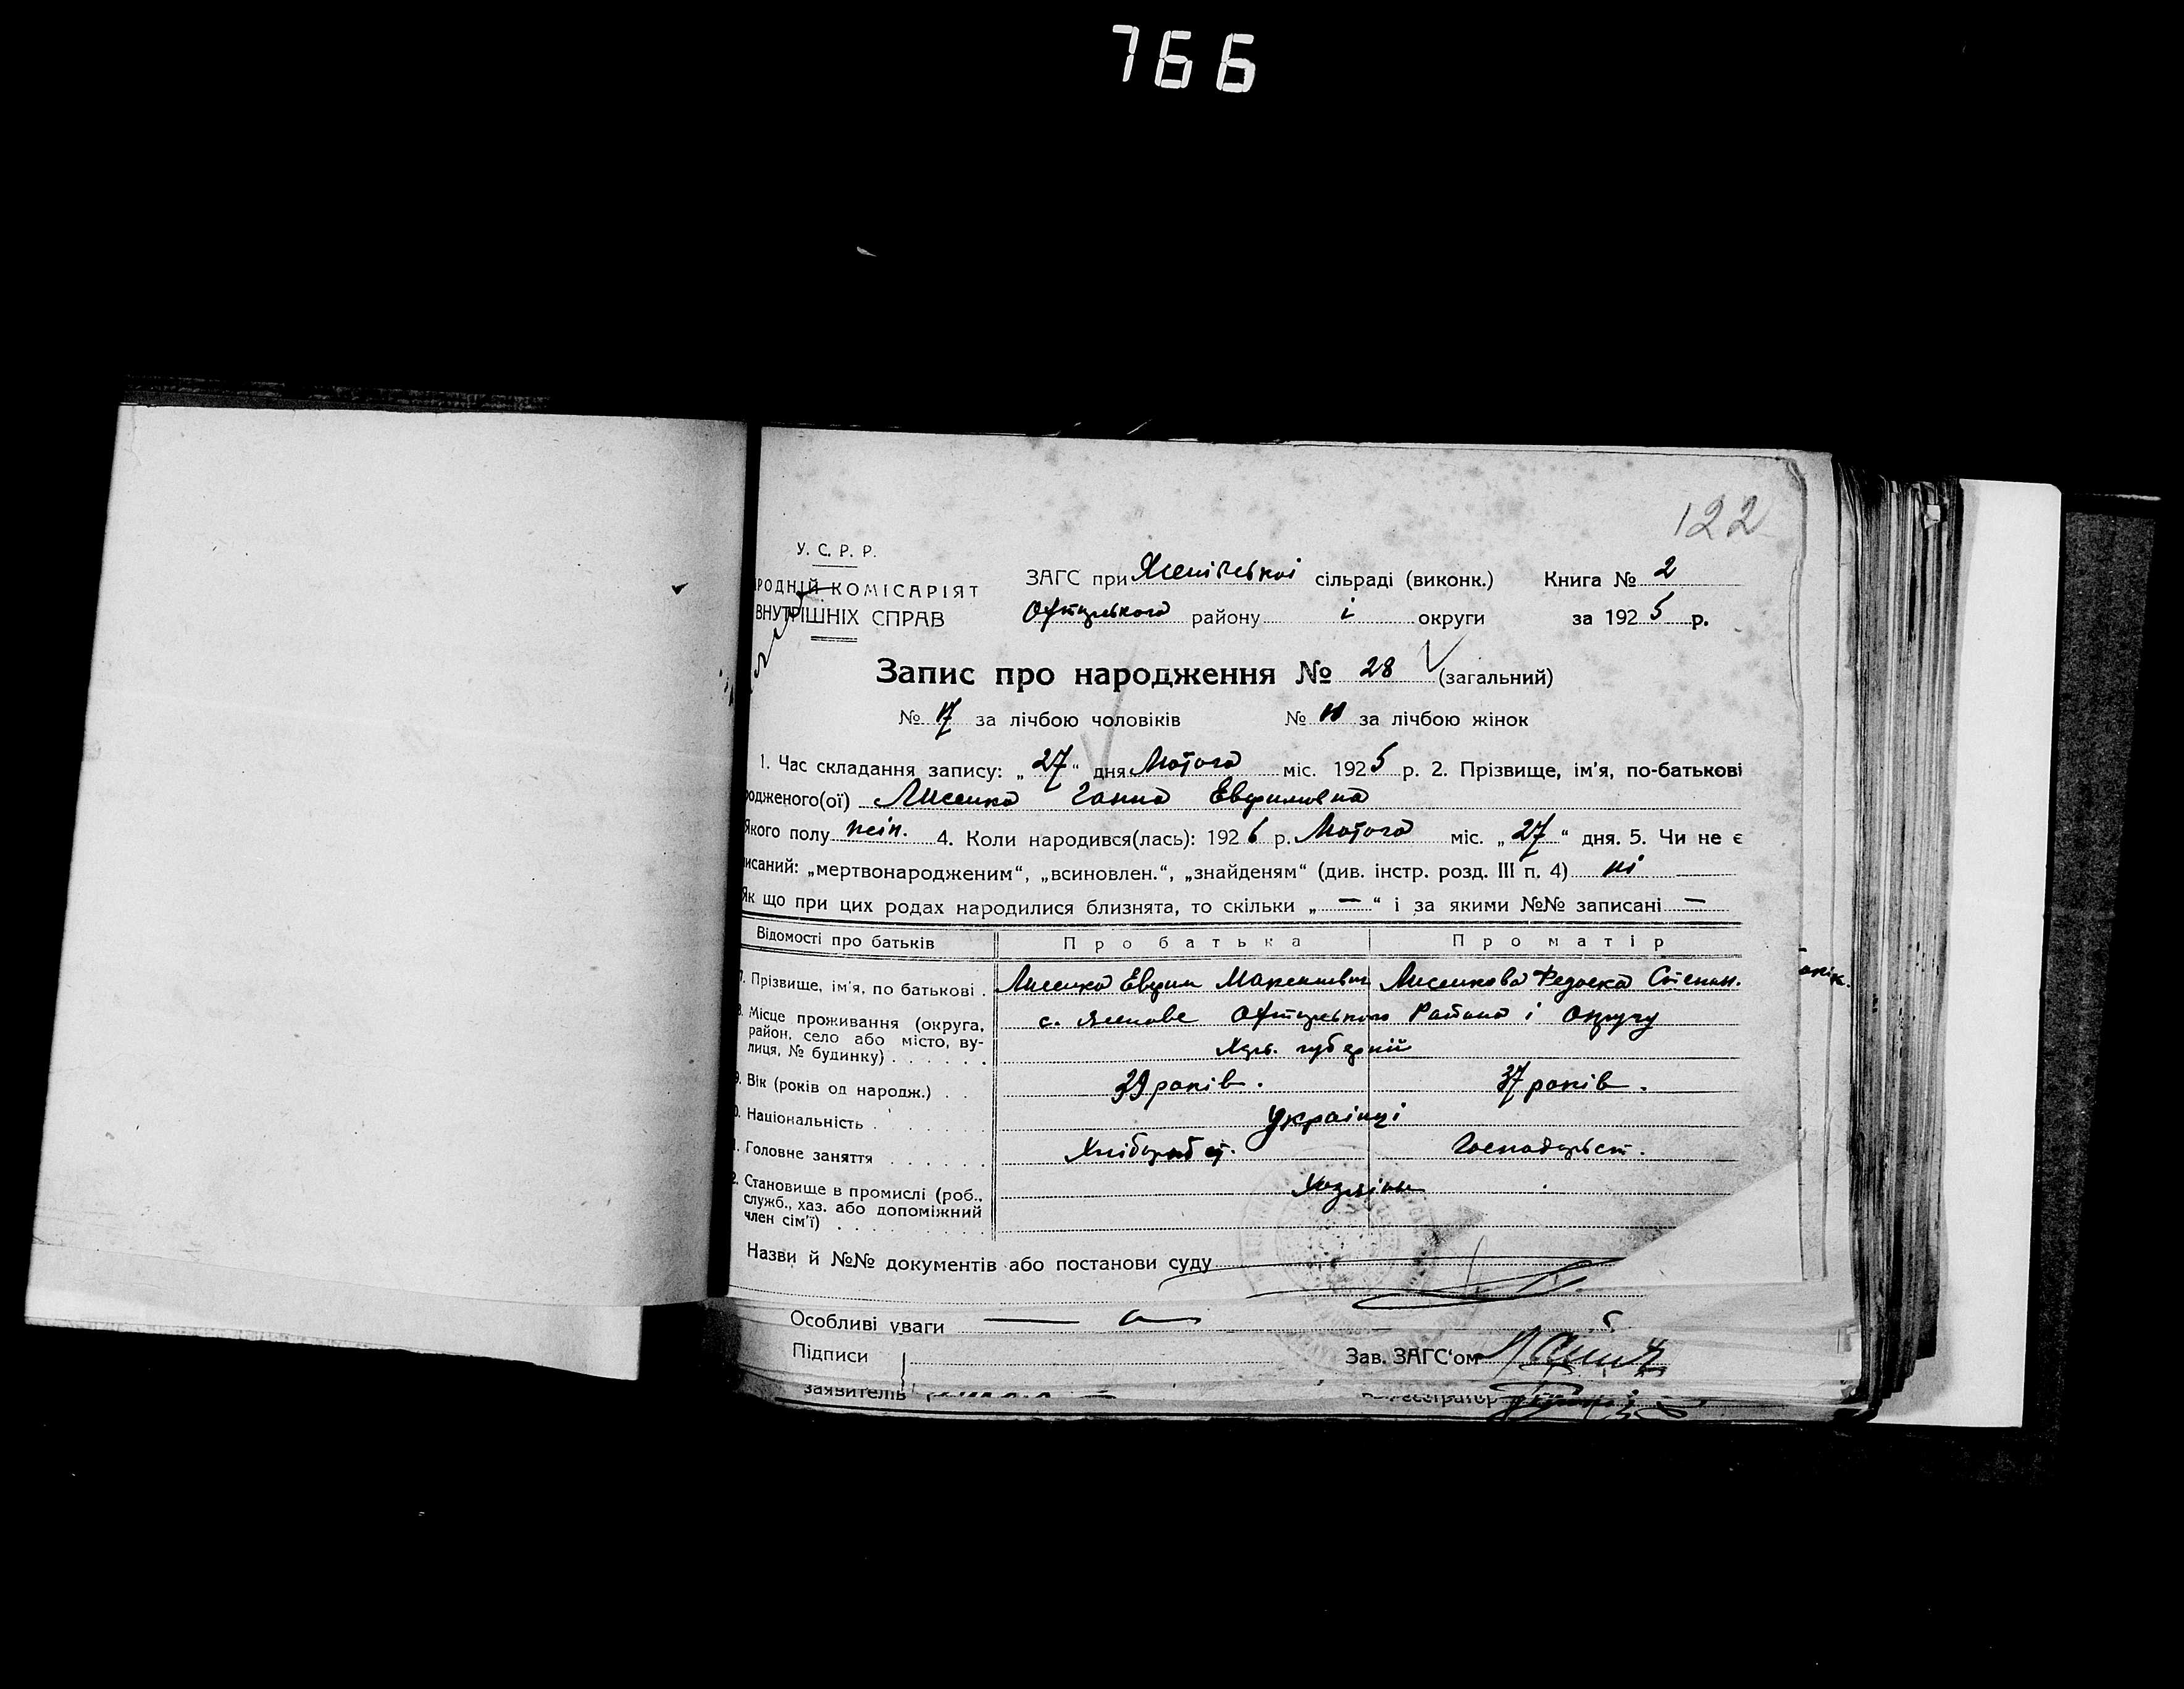 766
122
У. С. Р. Р.
РОДНІЙ КОМІСАРІЯТ
ВНУТРІШНІХ СПРАВ
ЗАГС при сільраді (виконк.) Книга № 2
Охтирського району і округи за 1925 р.
Запис про народження № 28 (загальний)
№ 17 за лічбою чоловіків № 11 за лічбою жінок
1. Час складання запису: „27“ дня Лютого міс. 1925 р. 2. Прізвище, ім'я, по-батькові
родженого(ої) Лисенко Ганна Евфимовна
Якого полу жін. 4. Коли народився(лась): 192 р. Лютого міс. „27“ дня. 5. Чи не є
писаний: „мертвонародженим“, „всиновлен.“, „знайденям“ (див. інстр. розд. III п. 4) ні
Як що при цих родах народилися близнята, то скільки „—“ і за якими №№ записані —
Відомості про батьків Про батька Про матір
7. Прізвище, ім'я, по батькові . Лисенко Евфим Максимович Лисенкова Федоска Степан.
8. Місце проживання (округа, с. Ясенове Охтирського Района і Округу
район, село або місто, ву-
лиця, № будинку) . . . . . . Харь. губерній
9. Вік (років од народж.) . . 39 років. 37 років.
0. Національність . . . . . . . Українці
1. Головне заняття . . . . . . Хлібороб ст. Господарьст.
2. Становище в промислі (роб., Хозяіни
служб., хаз. або допоміжний
член сім'ї) . . . . . . . .
Назви й №№ документів або постанови суду
Особливі уваги —
Підписи Зав. ЗАГС'ом
заявителів Реєстратор